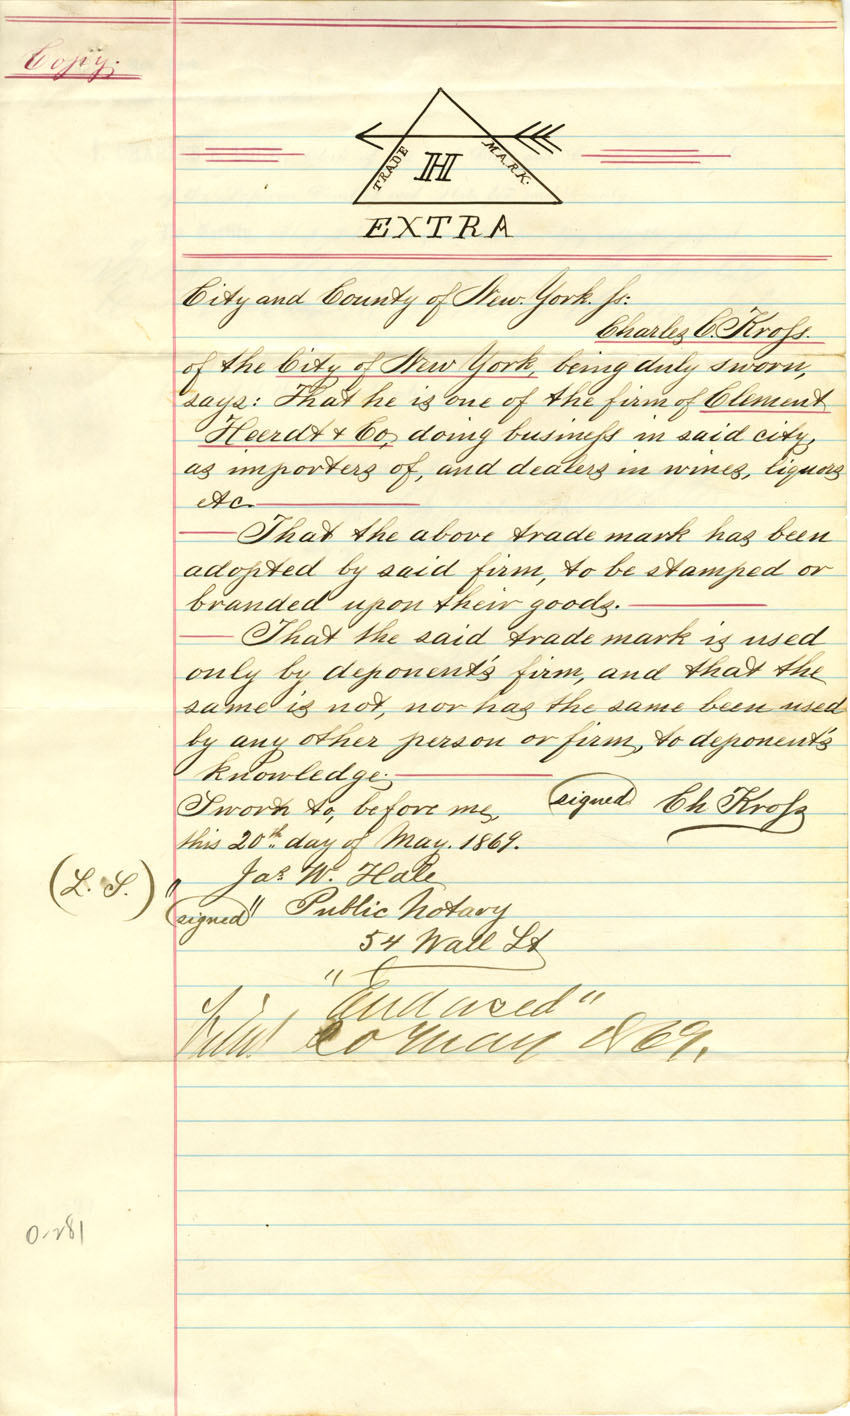 Copy.
TRADE MARK.
H
EXTRA
City and County of New York. ſs:
Charles C. Kroſs.
of the City of New York, being duly sworn,
says: That he is one of the firm of Clement
Heerdt & Co, doing buſineſs in said city,
as importers of, and dealers in wines, liquors
etc.
That the above trade mark has been
adopted by said firm, to be stamped or
branded upon their goods.
That the said trade mark is used
only by deponent's firm, and that the
same is not, nor has the same been used
by any other person or firm, to deponent's
knowledge.
Sworn to, before me, signed Ch Kroſs
this 20th day of May. 1869.
(L. S.) " Jas W. Hale
signed " Public Notary
54 Wall St
" Endorsed "
Filed 20 May 1869.
0-281